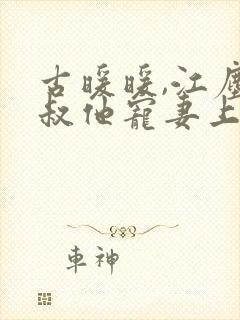 古暖暖,江塵
叔他寵妻上
車神